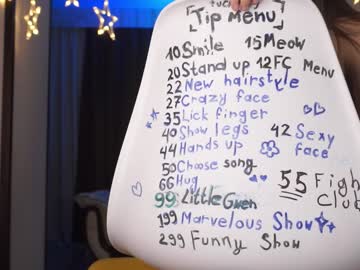 [Tip Menu]
10 Smile 15 Meow
20 Stand up 12 FC Menu
22 New hairstyle
27 Crazy face
35 Lick finger
40 Show legs 42 Sexy face
44 Hands up
50 Choose song
66 Hug 55 Fight Club
99 Little Gwen
199 Marvelous Show
299 Funny Show